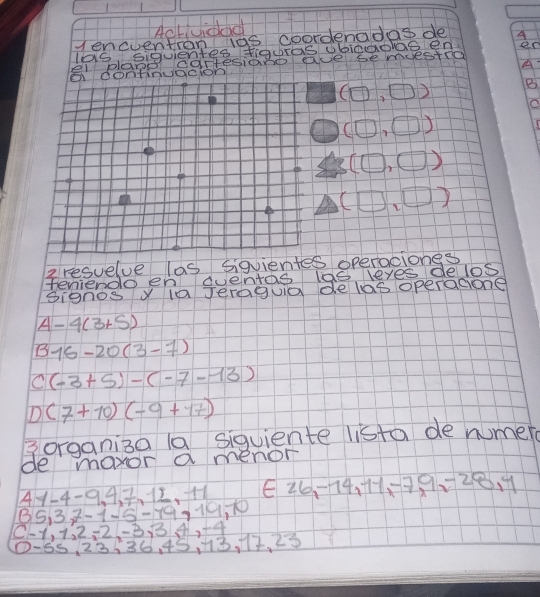 Actividad
1 encuentran las coordenadas de
las siguientes figuras ubicadas en
el plano cartesiano que se muestra
a continuacion
(□,□)
(□,□)
(□,□)
(□,□)
2 resuelve las siguientes operaciones
teniendo en cuentas las leyes de los
signos y la Jeraguia de las operacione
A -4(3+5)
B 16-20(3-7)
C (-3+5)-(-7-13)
D (7+10)(-9+17)
3 organiza la siguiente lista de numero
de mayor a menor
A 1-4-9,4,7,12,-11
E 26,-14,11,-7,9,-28,1
B 5,3,7-1-5-19,19,10
C -1,1,2,-2,-3,3,4,-4
D -55,23,36,45,-13,17,23